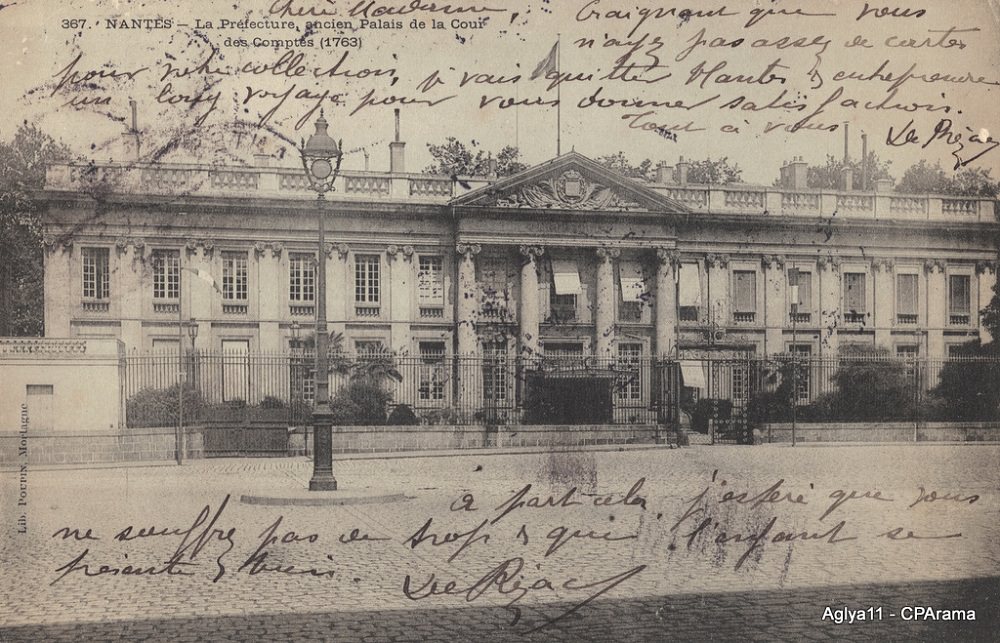 367. - NANTES - La Préfecture, ancien Palais de la Cour
des Comptes (1763)
Chère Madame, Craignant que vous
n'ayez pas assez de cartes
pour votre collection, je vais quitter Nantes & entreprendre
un long voyage pour vous donner satisfaction.
Tout à vous
Lib. POUPIN, Mortagne
à part cela, j'espère que vous
ne souffrez pas de trop & que l'enfant se
présente bien.
Aglya11 - CPArama